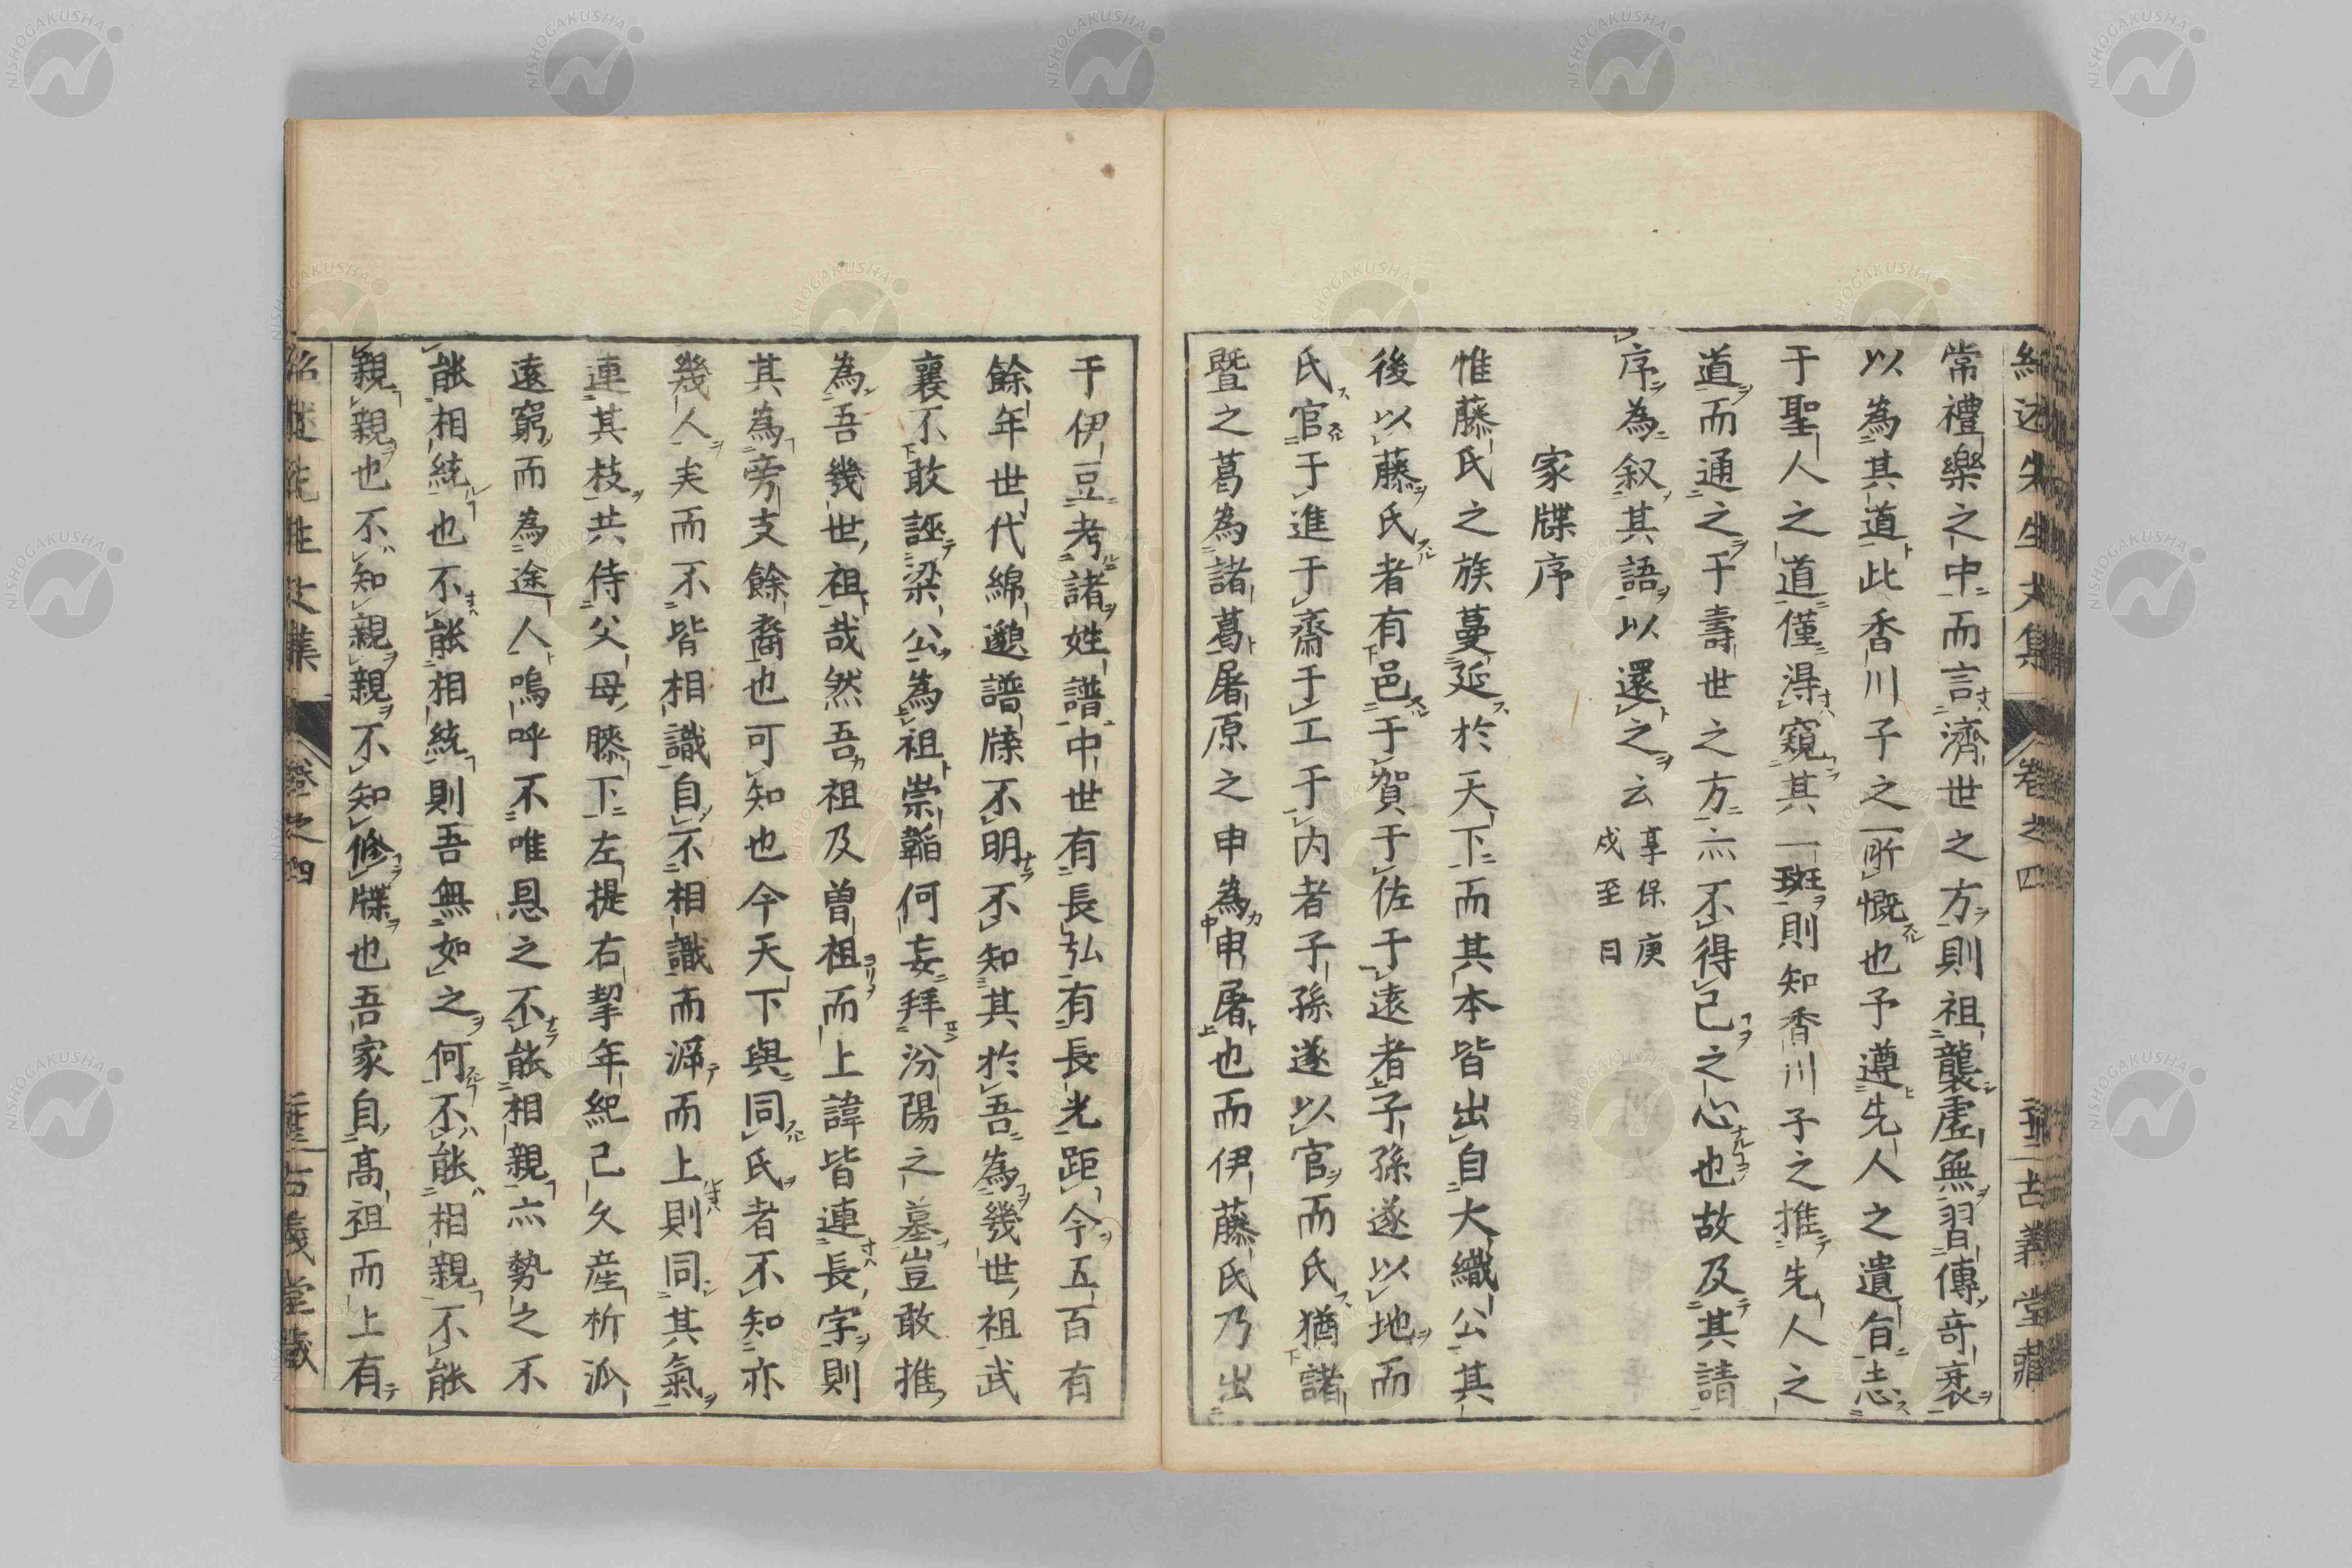 紹述先生文集 卷之四 古義堂藏
常禮樂之中而言濟世之方則祖襲虛無習傳奇衺
以為其道此香川子之所慨也予遵先人之遺旨志
于聖人之道僅得窺其一斑則知香川子之推先人之
道而通之于壽世之方亦不得已之心也故及其請
序為叙其語以還之云享保庚戌至日
家牒序
惟藤氏之族蔓延於天下而其本皆出自大織公其
後以藤氏者有邑于賀于佐于遠者子孫遂以地而
氏官于進于齋于工于内者子孫遂以官而氏猶諸
暨之葛為諸葛屠原之申為申屠也而伊藤氏乃出
于伊豆考諸姓譜中世有長弘有長光距今五百有
餘年世代綿邈譜牒不明不知其於吾為幾世祖武
襄不敢誣梁公為祖崇韜何妄拜汾陽之墓豈敢推
為吾幾世祖哉然吾祖及曽祖而上諱皆連長字則
其為旁支餘裔也可知也今天下與同氏者不知亦
幾人矣而不皆相識自不相識而泝而上則同其氣
連其枝共侍父母膝下左提右挈年紀已久産析派
遠窮而為途人嗚呼不唯恩之不能相親亦勢之不
能相統也不能相統則吾無如之何不能相親不能
親親也不知親親不知修牒也吾家自高祖而上有
紹述先生文集 卷之四 古義堂藏